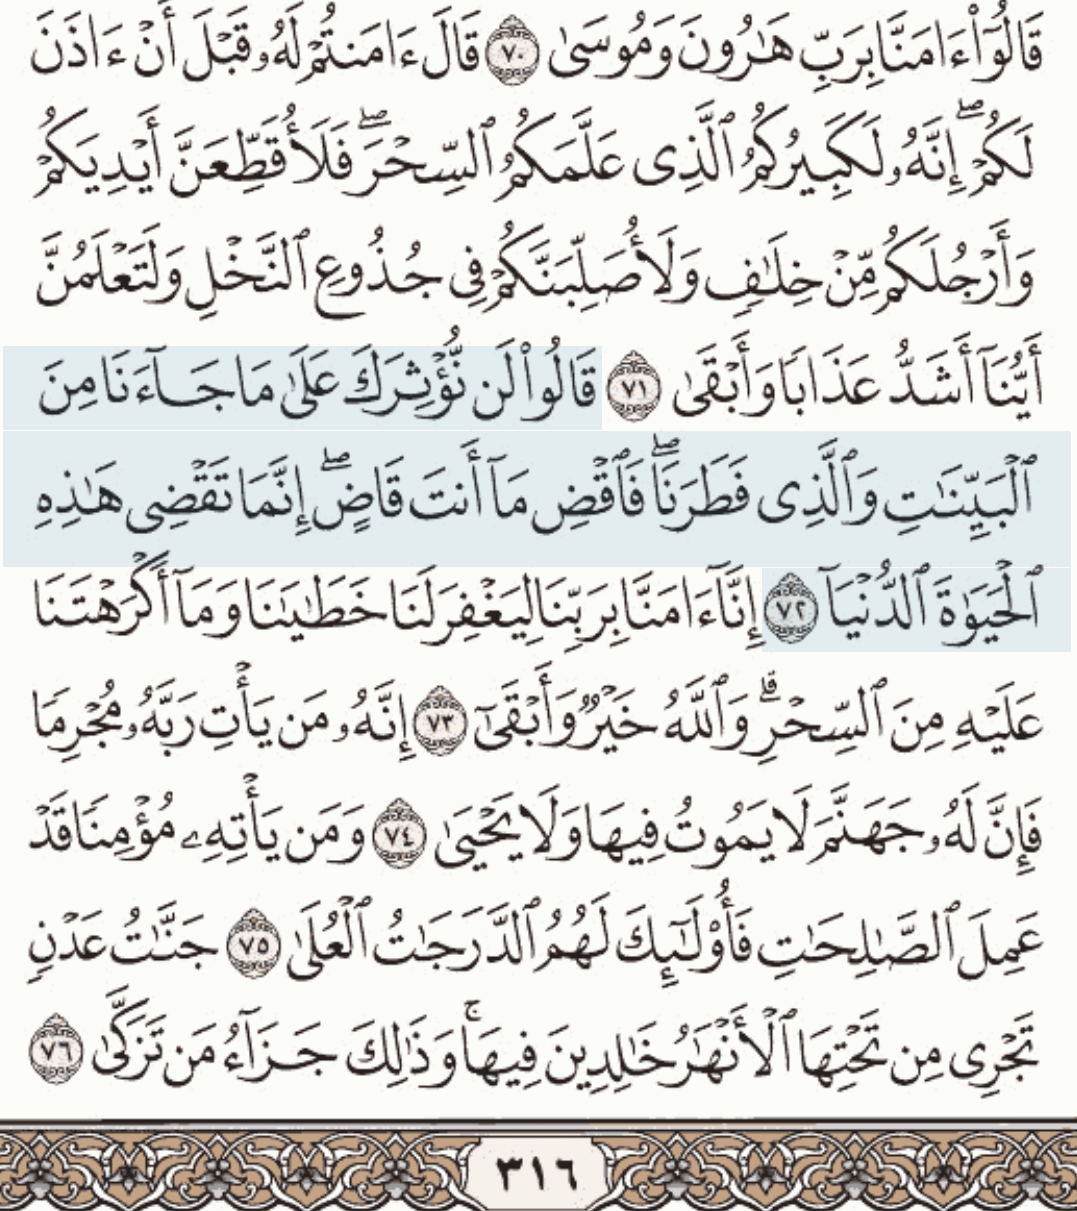 قَالُوٓا۟ ءَامَنَّا بِرَبِّ هَـٰرُونَ وَمُوسَىٰ ٧٠ قَالَ ءَامَنتُمْ لَهُۥ قَبْلَ أَنْ ءَاذَنَ
لَكُمْ ۖ إِنَّهُۥ لَكَبِيرُكُمُ ٱلَّذِى عَلَّمَكُمُ ٱلسِّحْرَ ۖ فَلَأُقَطِّعَنَّ أَيْدِيَكُمْ
وَأَرْجُلَكُم مِّنْ خِلَـٰفٍ وَلَأُصَلِّبَنَّكُمْ فِى جُذُوعِ ٱلنَّخْلِ وَلَتَعْلَمُنَّ
أَيُّنَآ أَشَدُّ عَذَابًا وَأَبْقَىٰ ٧١ قَالُوا۟ لَن نُّؤْثِرَكَ عَلَىٰ مَا جَآءَنَا مِنَ
ٱلْبَيِّنَـٰتِ وَٱلَّذِى فَطَرَنَا ۖ فَٱقْضِ مَآ أَنتَ قَاضٍ ۖ إِنَّمَا تَقْضِى هَـٰذِهِ
ٱلْحَيَوٰةَ ٱلدُّنْيَآ ٧٢ إِنَّآ ءَامَنَّا بِرَبِّنَا لِيَغْفِرَ لَنَا خَطَـٰيَـٰنَا وَمَآ أَكْرَهْتَنَا
عَلَيْهِ مِنَ ٱلسِّحْرِ ۗ وَٱللَّهُ خَيْرٌ وَأَبْقَىٰٓ ٧٣ إِنَّهُۥ مَن يَأْتِ رَبَّهُۥ مُجْرِمًا
فَإِنَّ لَهُۥ جَهَنَّمَ لَا يَمُوتُ فِيهَا وَلَا يَحْيَىٰ ٧٤ وَمَن يَأْتِهِۦ مُؤْمِنًا قَدْ
عَمِلَ ٱلصَّـٰلِحَـٰتِ فَأُو۟لَـٰٓئِكَ لَهُمُ ٱلدَّرَجَـٰتُ ٱلْعُلَىٰ ٧٥ جَنَّـٰتُ عَدْنٍ
تَجْرِى مِن تَحْتِهَا ٱلْأَنْهَـٰرُ خَـٰلِدِينَ فِيهَا ۚ وَذَٰلِكَ جَزَآءُ مَن تَزَكَّىٰ ٧٦
٣١٦